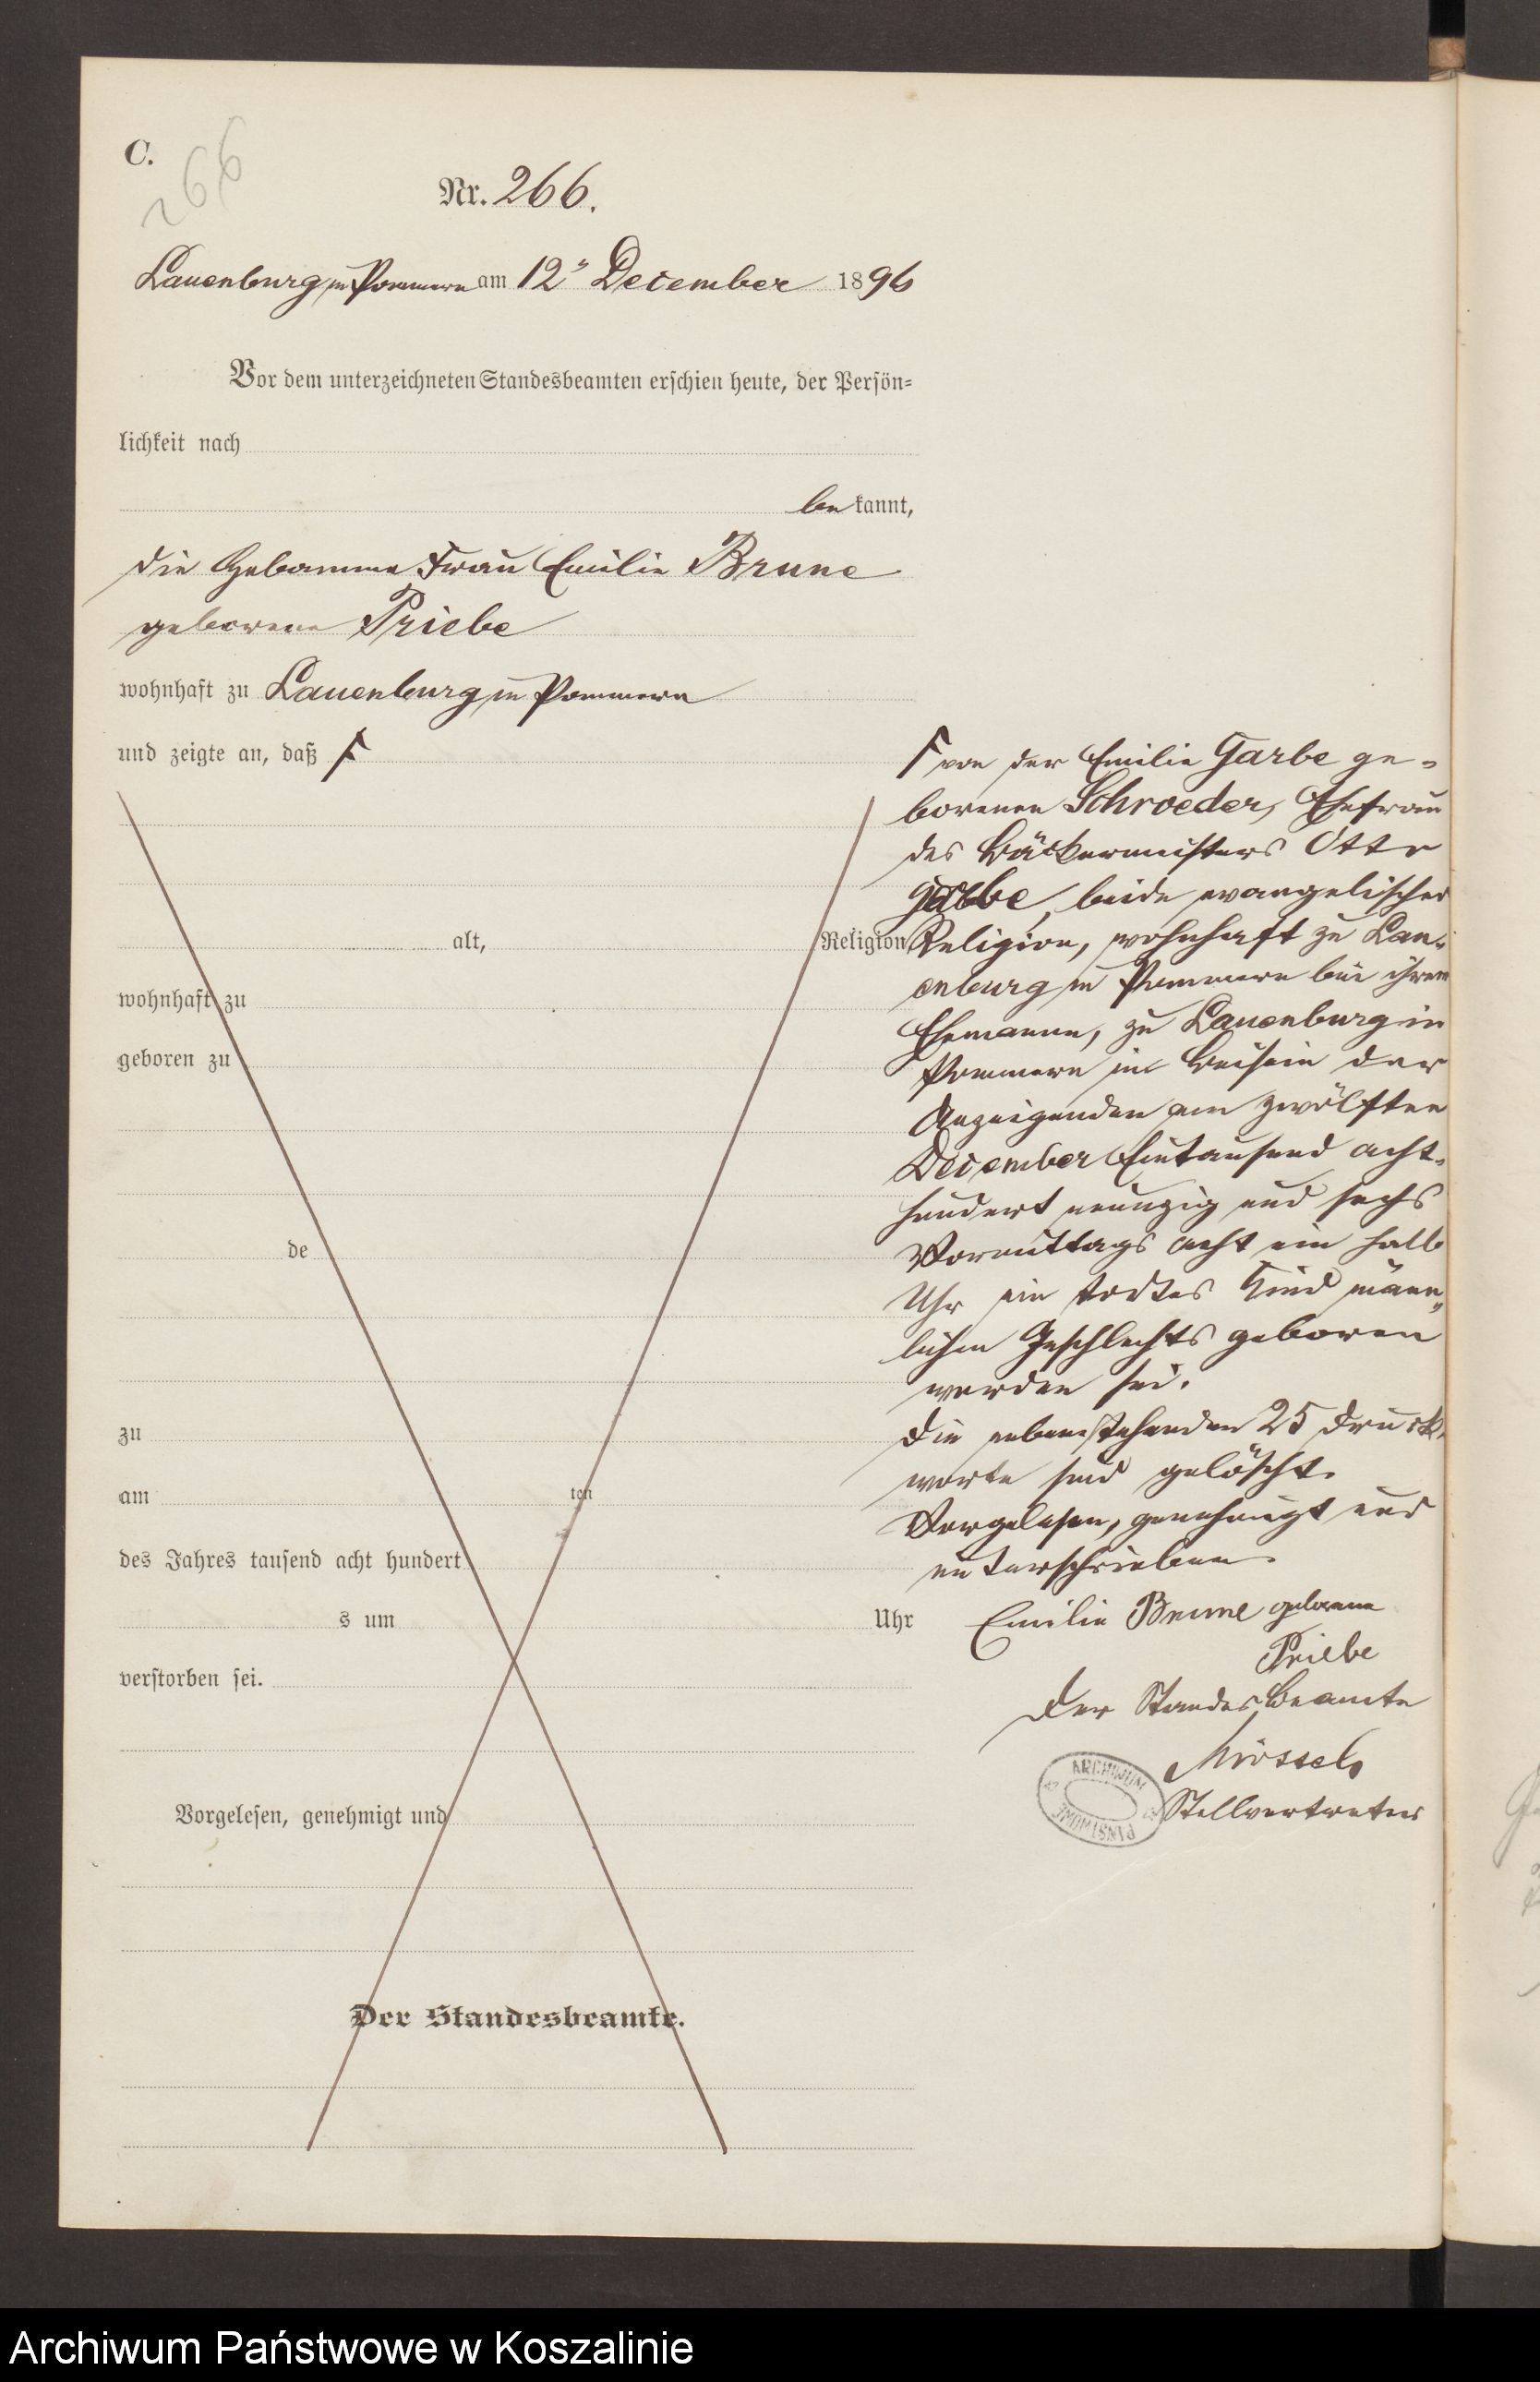 C.
266
Nr. 266.
Lauenburg in Pommern am 12ⁿ December 1896
Vor dem unterzeichneten Standesbeamten erschien heute, der Persön=
lichkeit nach
be kannt,
die Hebamme Frau Emilie Brune
geborene Priebe
wohnhaft zu Lauenburg in Pommern
und zeigte an, daß F
alt, Religion
wohnhaft zu
geboren zu
de
zu
am ten
des Jahres tausend acht hundert
s um Uhr
verstorben sei.
Vorgelesen, genehmigt und
Der Standesbeamte.
F von der Emilie Garbe ge=
borenen Schroeder, Ehefrau
des Bäckermeisters Otto
Garbe, beide evangelischer
Religion, wohnhaft zu Lau=
enburg in Pommern bei ihrem
Ehemanne, zu Lauenburg in
Pommern in Beisein der
Anzeigenden am zwölften
December Eintausend acht=
hundert neunzig und sechs
Vormittags acht ein halb
Uhr ein todtes Kind männ=
lichen Geschlechts geboren
worden sei.
Die nebenstehenden 25 Druck=
worte sind gelöscht.
Vorgelesen, genehmigt und
unterschrieben.
Emilie Brune geborene
Priebe
Der Standesbeamte
Stellvertreter
ARCHIWUM
PAŃSTWOWE
Archiwum Państwowe w Koszalinie